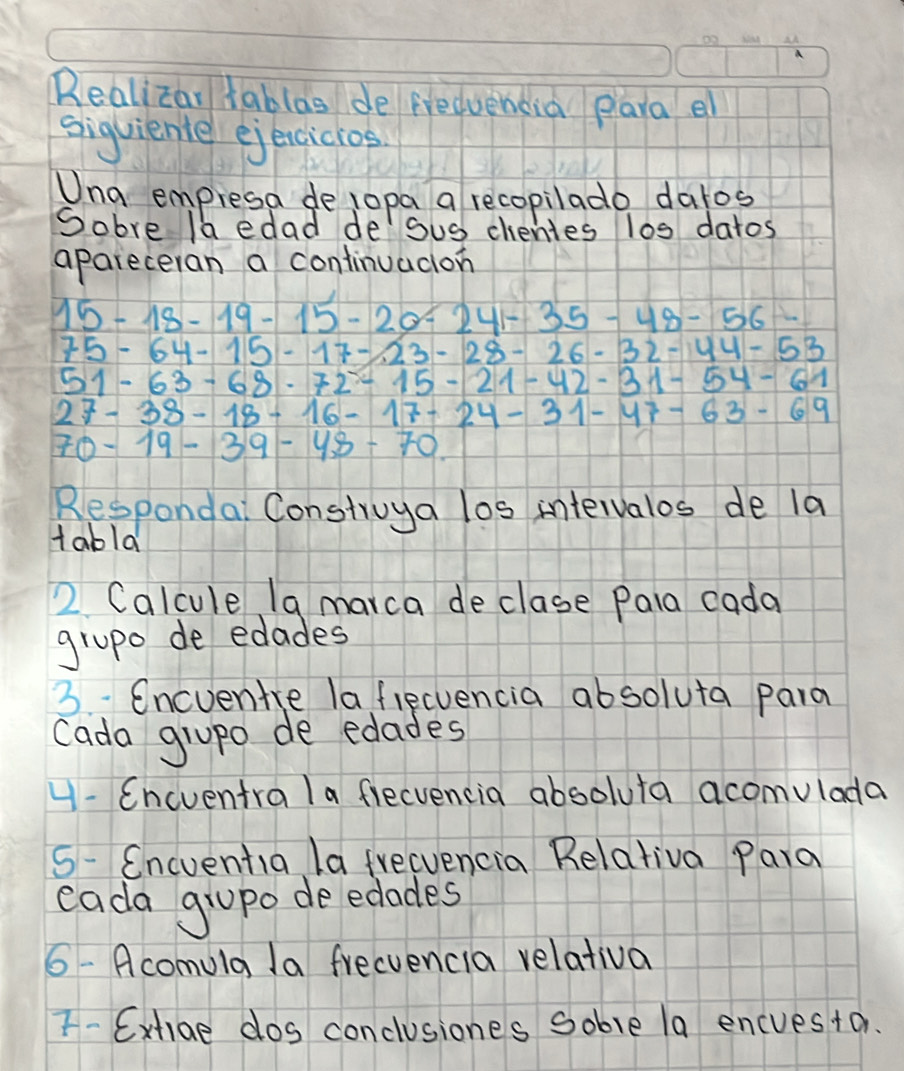 Realizar tablas de frecuencia para el
siguiente ejercicios.
Una empresa de ropa a recopilado datos
Sobre la edad de sus clientes los datos
apareceran a continuación
15 - 18 - 19 - 15 - 20 - 24 - 35 - 48 - 56 -
75 - 64 - 15 - 17 - 23 - 28 - 26 - 32 - 44 - 53
51 - 63 - 68 - 72 - 15 - 21 - 42 - 31 - 54 - 61
27 - 38 - 18 - 16 - 17 - 24 - 31 - 47 - 63 - 69
70 - 19 - 39 - 48 - 70.
Responda: Construya los intervalos de la
tabla
2. Calcule la marca de clase para cada
grupo de edades
3.- Encuentre la frecuencia absoluta para
Cada grupo de edades
4- Encuentra la frecuencia absoluta acomulada
5- Encuentra la frecuencia Relativa para
cada grupo de edades
6- Acomula la frecuencia relativa
7- Extrae dos conclusiones sobre la encuesta.